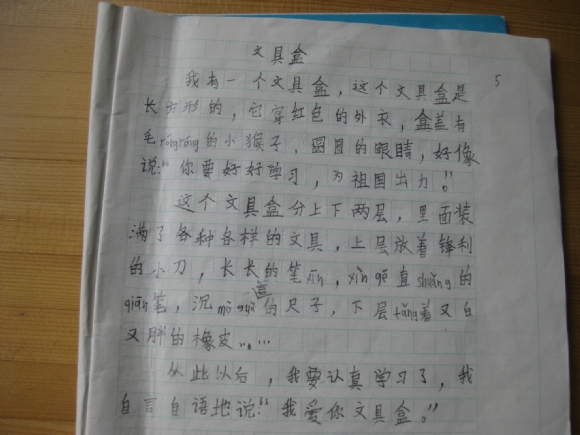 文具盒
我有一个文具盒，这个文具盒是
长方形的，它穿红色的外衣，盒盖有
毛róngróng的小猴子，圆圆的眼睛，好像
说：“你要好好学习，为祖国出力。”
这个文具盒分上下两层，里面装
满了各种各样的文具，上层放着锋利
的小刀，长长的笔xīn，xìn gē直shuǎng的
qiān笔，沉mò guǎ的尺子，下层tǎng着又白
又胖的橡皮……
从此以后，我要认真学习了，我
自言自语地说：“我爱你文具盒。”
5